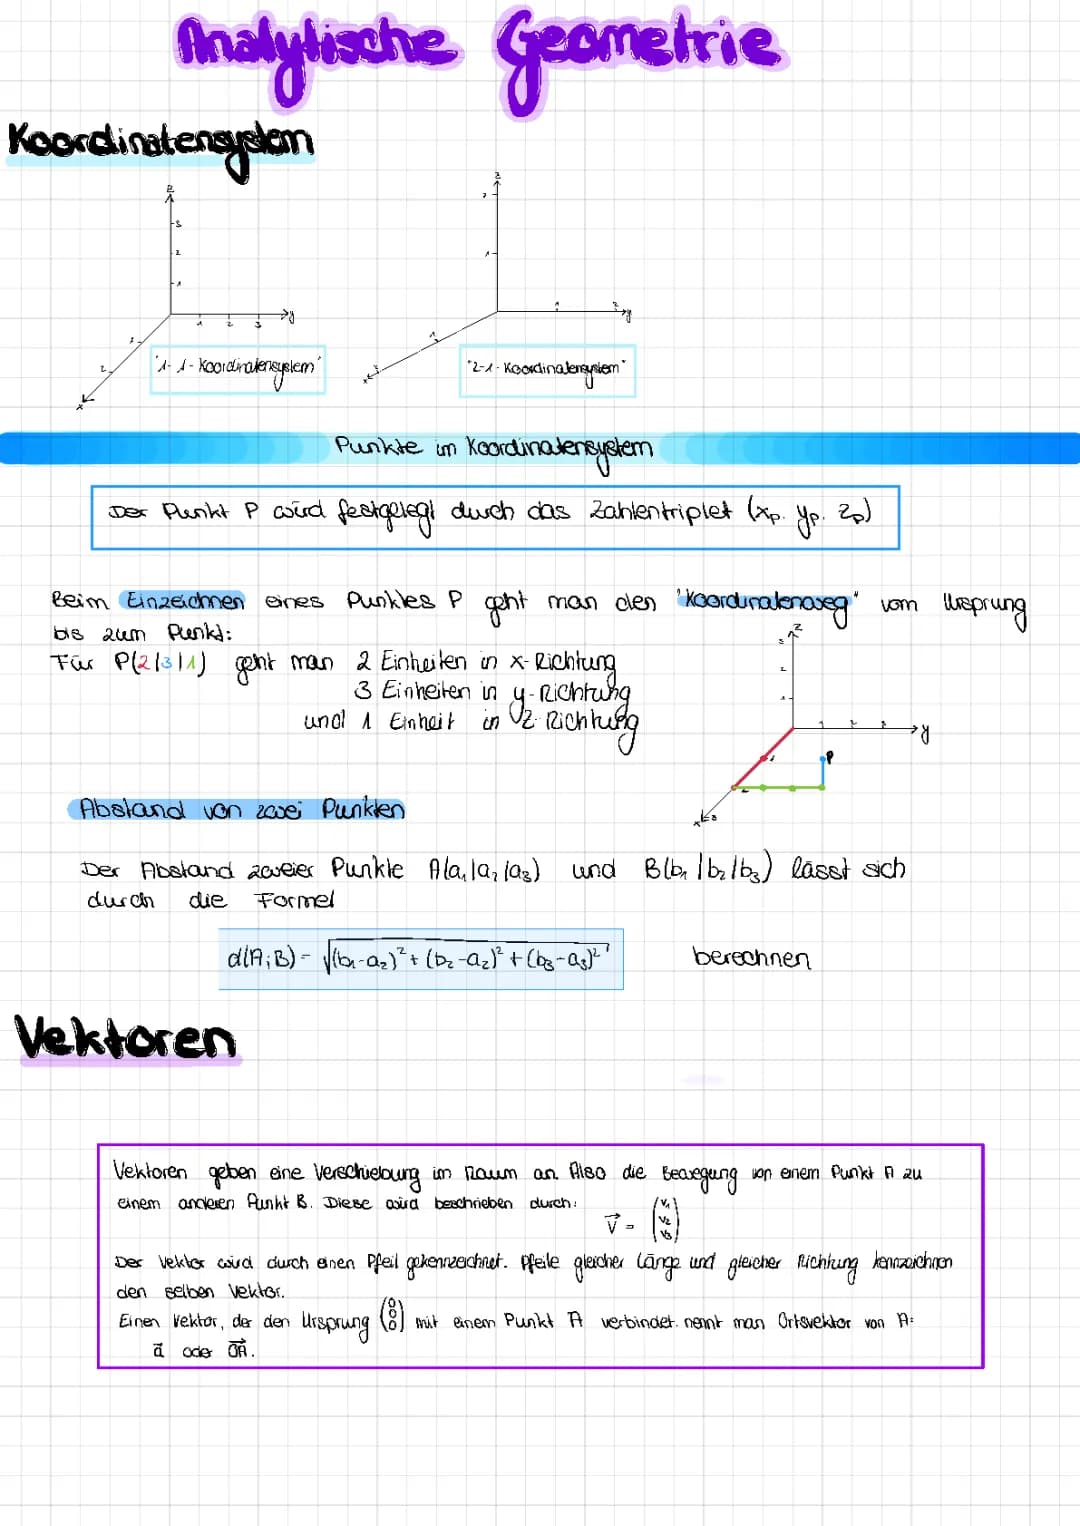 Analytische Geometrie
Koordinatensystem
z
3
2
1
1 2 3 y
1
2
x
"1-1-Koordinatensystem"
z
2
1
1 2 y
1
2
x
"2-1-Koordinatensystem"
Punkte im Koordinatensystem
Der Punkt P wird festgelegt durch das Zahlentriplet (xp. yp. zp)
Beim Einzeichnen eines Punktes P geht man den "Koordinatenweg" vom Ursprung
bis zum Punkt:
Für P(2|3|1) geht man 2 Einheiten in x-Richtung
3 Einheiten in y-Richtung
und 1 Einheit in z-Richtung
z
3
2
1
1 2 3 y
P
1
2
3
x
Abstand von zwei Punkten
Der Abstand zweier Punkte A(a₁|a₂|a₃) und B(b₁|b₂|b₃) lässt sich
durch die Formel
d(A;B) = √(b₁-a₂)² + (b₂-a₂)² + (b₃-a₃)² berechnen
Vektoren
Vektoren geben eine Verschiebung im Raum an. Also die Bewegung von einem Punkt A zu
einem anderen Punkt B. Diese wird beschrieben durch:
v⃗ = (v₁ v₂ v₃)
Der Vektor wird durch einen Pfeil gekennzeichnet. Pfeile gleicher Länge und gleicher Richtung kennzeichnen
den selben Vektor.
Einen Vektor, der den Ursprung (0 0 0) mit einem Punkt A verbindet. nennt man Ortsvektor von A:
a⃗ oder OA⃗.